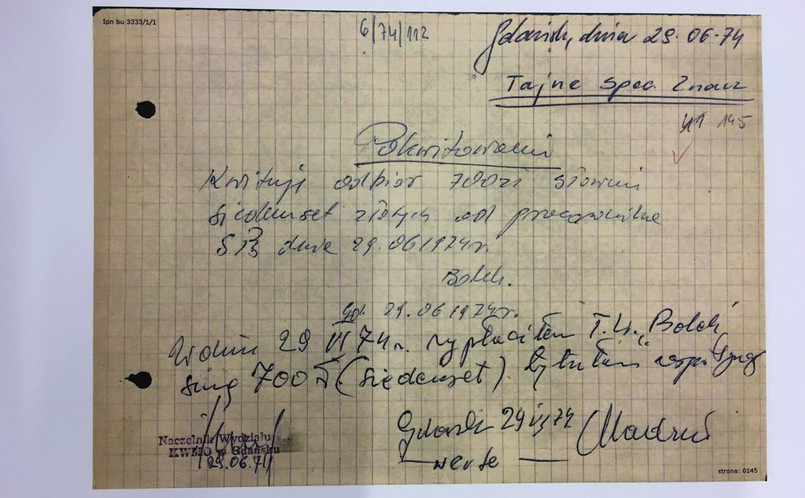 Ipn bu 3333/1/1
6/74/112
Gdańsk, dnia 29.06.74
Tajne spec. Znacz
145
Pokwitowanie
Kwituję odbiór 700zł słownie
siedemset złotych od pracownika
SB dnia 29.06 1974r.
Bolek.
Gd. 29.06 1974r.
W dniu 29 VI 74r. wypłaciłem T.W. "Bolek"
sumę 700 zł (siedemset) tytułem
Gdańsk 29 VI 74
Naczelnik Wydziału
KWMO w Gdańsku
29.06.74
verte
strona: 0145